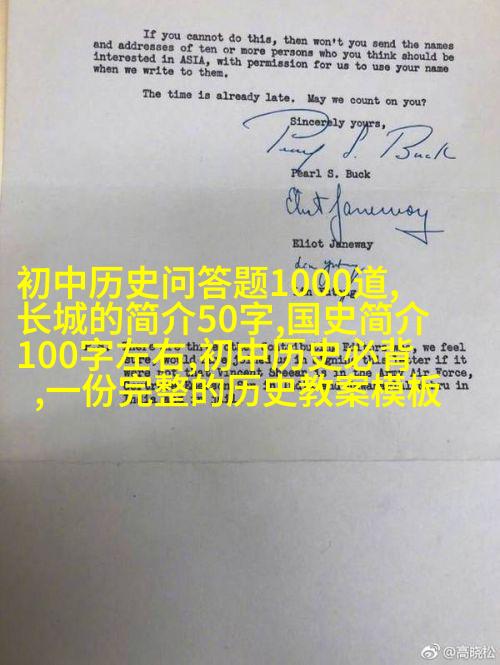 If you cannot do this, then won't you send the names
and addresses of ten or more persons who you think should be
interested in ASIA, with permission for us to use your name
when we write to them.
The time is already late. May we count on you?
Sincerely yours,
Pearl S. Buck
Pearl S. Buck
Eliot Janeway
Eliot Janeway
初中历史问答题1000道,
长城的简介50字,国史简介
100字左右,初中历史必背
,一份完整的历史教案模板
we feel
if it
Vincent Sheean is in the Army Air Force,
in
@高晓松